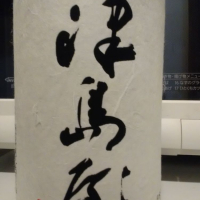 津島屋